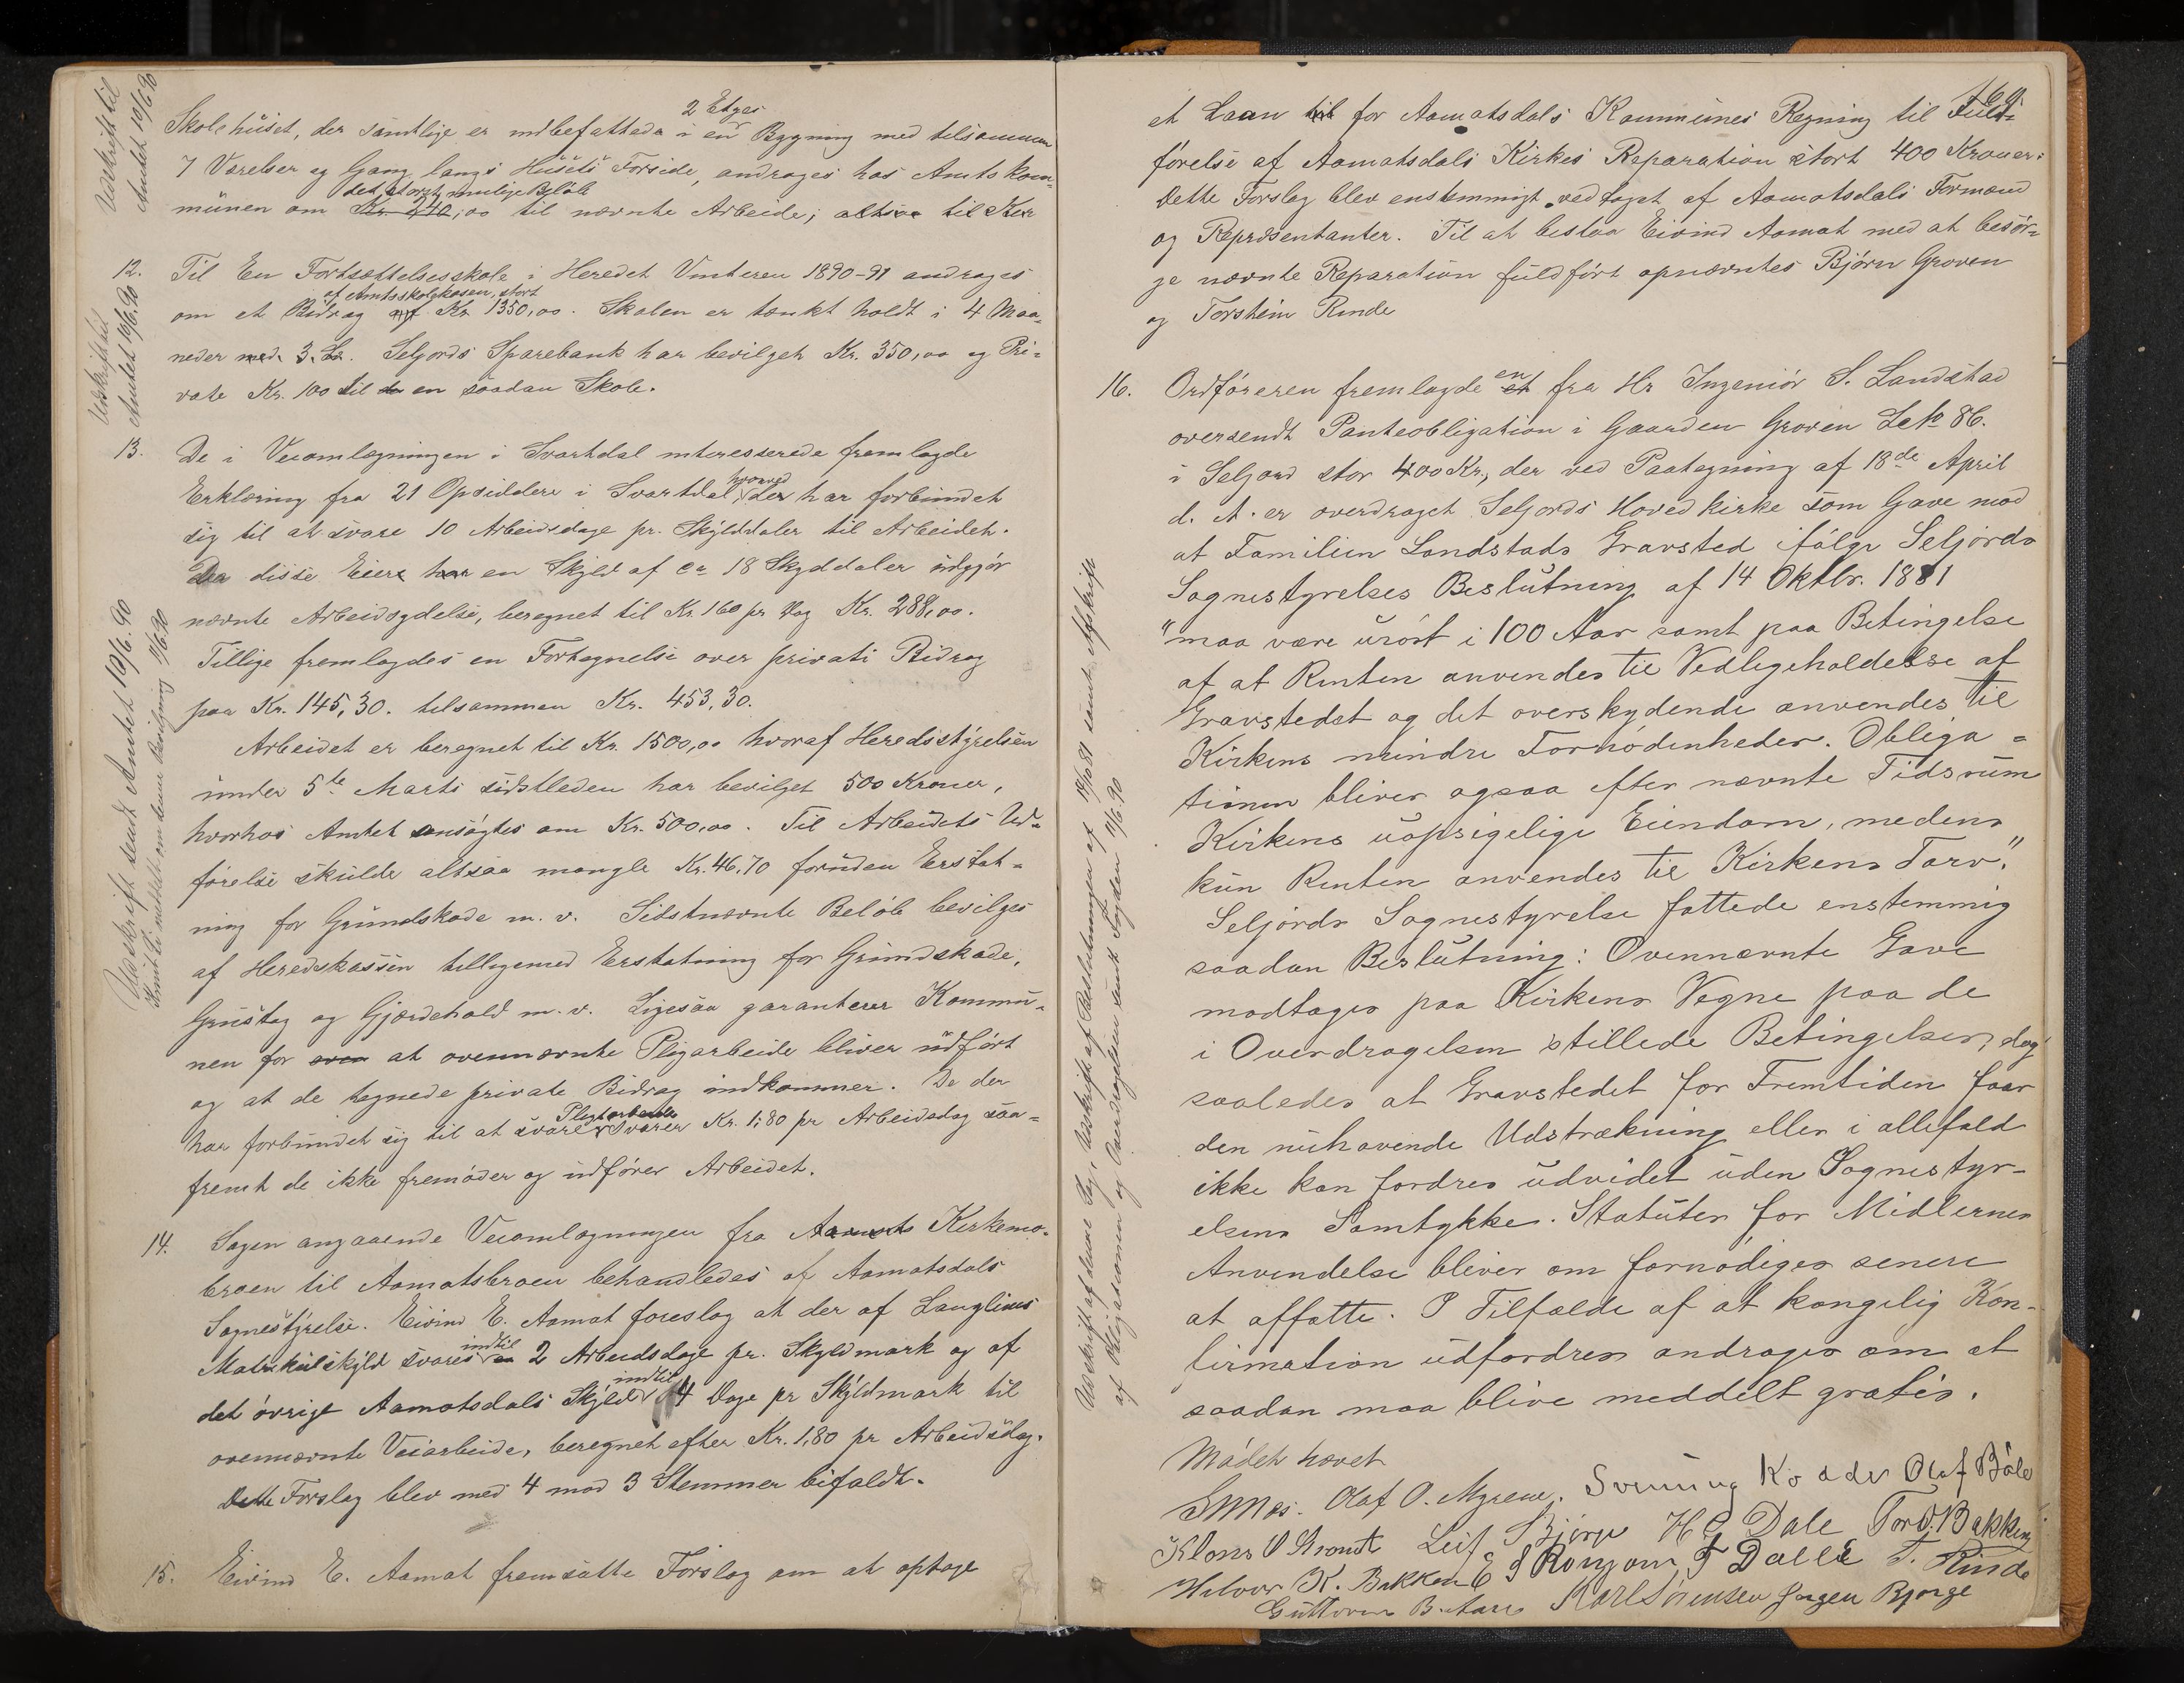 Udskrift til
Amtet 10/6.90
2 Etges
Skolehuset, der samtlige er indbefattede i en Bygning med tilsammen
7 Værelser og Gang langs Husets Forside, andrages hos Amtskom-
det størst mulige Beløb
munen om Kr. 240,00 til nævnte Arbeide; altsaa til
Udskrift til
Amtet 10/6.90
12. Til En Fortsættelsesskole i Heredet Vinteren 1890-91 andrages
af Amtsskolekasen, stort
om et Bidrag Kr 1350,00. Skolen er tænkt holdt i 4 Maa-
neder med 3. Lr. Seljords Sparebank har bevilget Kr. 350,00 og Pri-
vate Kr. 100 til en saadan Skole.
Udskrift sendt Amtet 10/6.90
13. De i Veiomlægningen i Svartdal interesserede fremlagde
hvorved
Erklæring fra 21 Opsiddere i Svartdal, der har forbundet
sig til at svare 10 Arbeidsdage pr. Skylddaler til Arbeidet.
Da disse Eiere har en Skyld af ca 18 Skyddaler udgjør
nævnte Arbeidsydelse, beregnet til Kr. 160 pr Dag Kr. 288,00.
Tillige fremlagdes en Fortegnelse over private Bidrag
paa Kr. 145,30. tilsammen Kr. 453,30.
Arbeidet er beregnet til Kr. 1500,00 hvoraf Heredsstyrelsen
under 5te Marts sidstleden har bevilget 500 Kroner,
hvorhos Amtet ansøgtes om Kr. 500,00. Til Arbeidets Ud-
førelse skulde altsaa mangle Kr. 46,70 foruden Erstat-
ning for Grundskade m. v. Sidstnævnte Beløb bevilges
af Heredskassen tilligemed Erstatning for Grundskade,
Grustag og Gjærdehold m. v. Ligesaa garanterer Kommu-
nen for at ovennævnte Pligtarbeide bliver udført
og at de tegnede private Bidrag indkommer. De der
Pligtarbeide
har forbundet sig til at svare svarer Kr. 1,80 pr Arbeidsdag saa-
fremt de ikke fremøder og udfører Arbeidet.
14. Sagen angaaende Veiomlægningen fra Aamots Kirkemo-
broen til Aamotsbroen behandledes af Aamotsdals
Sognestyrelse. Eivind E. Aamot foreslog at der af Langlims
indtil
Matrikulskyld svares 2 Arbeidsdage pr. Skyldmark og af
indtil
det øvrige Aamotsdals Skyld 4 Dage pr Skyldmark til
ovennævnte Veiarbeide, beregnet efter Kr. 1,80 pr Arbeidsdag.
Dette Forslag blev med 4 mod 3 Stemmer bifaldt.
15. Eivind E. Aamot fremsatte Forslag om at optage
et Laan til for Aamotsdals Kommunes Regning til Fuld-
førelse af Aamotsdals Kirkes Reparation stort 400 Kroner.
Dette Forslag blev enstemmigt vedtaget af Aamotsdals Formænd
og Repræsentanter. Til at bistaa Eivind Aamot med at besør-
ge nævnte Reparation fuldført opnævntes Bjørn Groven
og Torstein Rinde
Udskrift af denne Sag, Udskrift af Beslutningen af 14/10 81 samt Afskrift
af Obligationen og Overdragelsen sendt Fogden 11/6.90
en
16. Ordføreren fremlagde et fra Hr Ingeniør S. Landstad
oversendt Panteobligation i Gaarden Groven Lok 86.
i Seljord stor 400 Kr., der ved Paategning af 18de April
d. A. er overdraget Seljords Hovedkirke som Gave mod
at Familien Landstads Gravsted ifølge Seljords
Sognestyrelses Beslutning af 14 Oktbr. 1881
"maa være urørt i 100 Aar samt paa Betingelse
af at Renten anvendes til Vedligeholdelse af
Gravstedet og det overskydende anvendes til
Kirkens mindre Fornødenheder. Obliga-
tionen bliver ogsaa efter nævnte Tidsrum
Kirkens uopsigelige Eiendom, medens
kun Renten anvendes til Kirkens Tarv."
Seljords Sognestyrelse fattede enstemmig
saadan Beslutning: Ovennævnte Gave
modtages paa Kirkens Vegne paa de
i Overdragelsen stillede Betingelser, dog
saaledes at Gravstedet for Fremtiden faar
den nuhavende Udstrækning eller i allefald
ikke kan fordres udvidet uden Sognestyr-
elsens Samtykke. Statuter for Midlernes
Anvendelse bliver om fornødiges senere
at affatte. I Tilfælde af at kongelig Kon-
firmation udfordres andrages om at
saadan maa blive meddelt gratis.
Mødet hævet
Olaf O. Myrene. Olaf Bøle
Leif Bjørge H G Dale Tor O. Bakken
Halvor K. Bakken E S Rongom T Dalle T. Rinde
Karl Sørensen Jørgen Bjørge